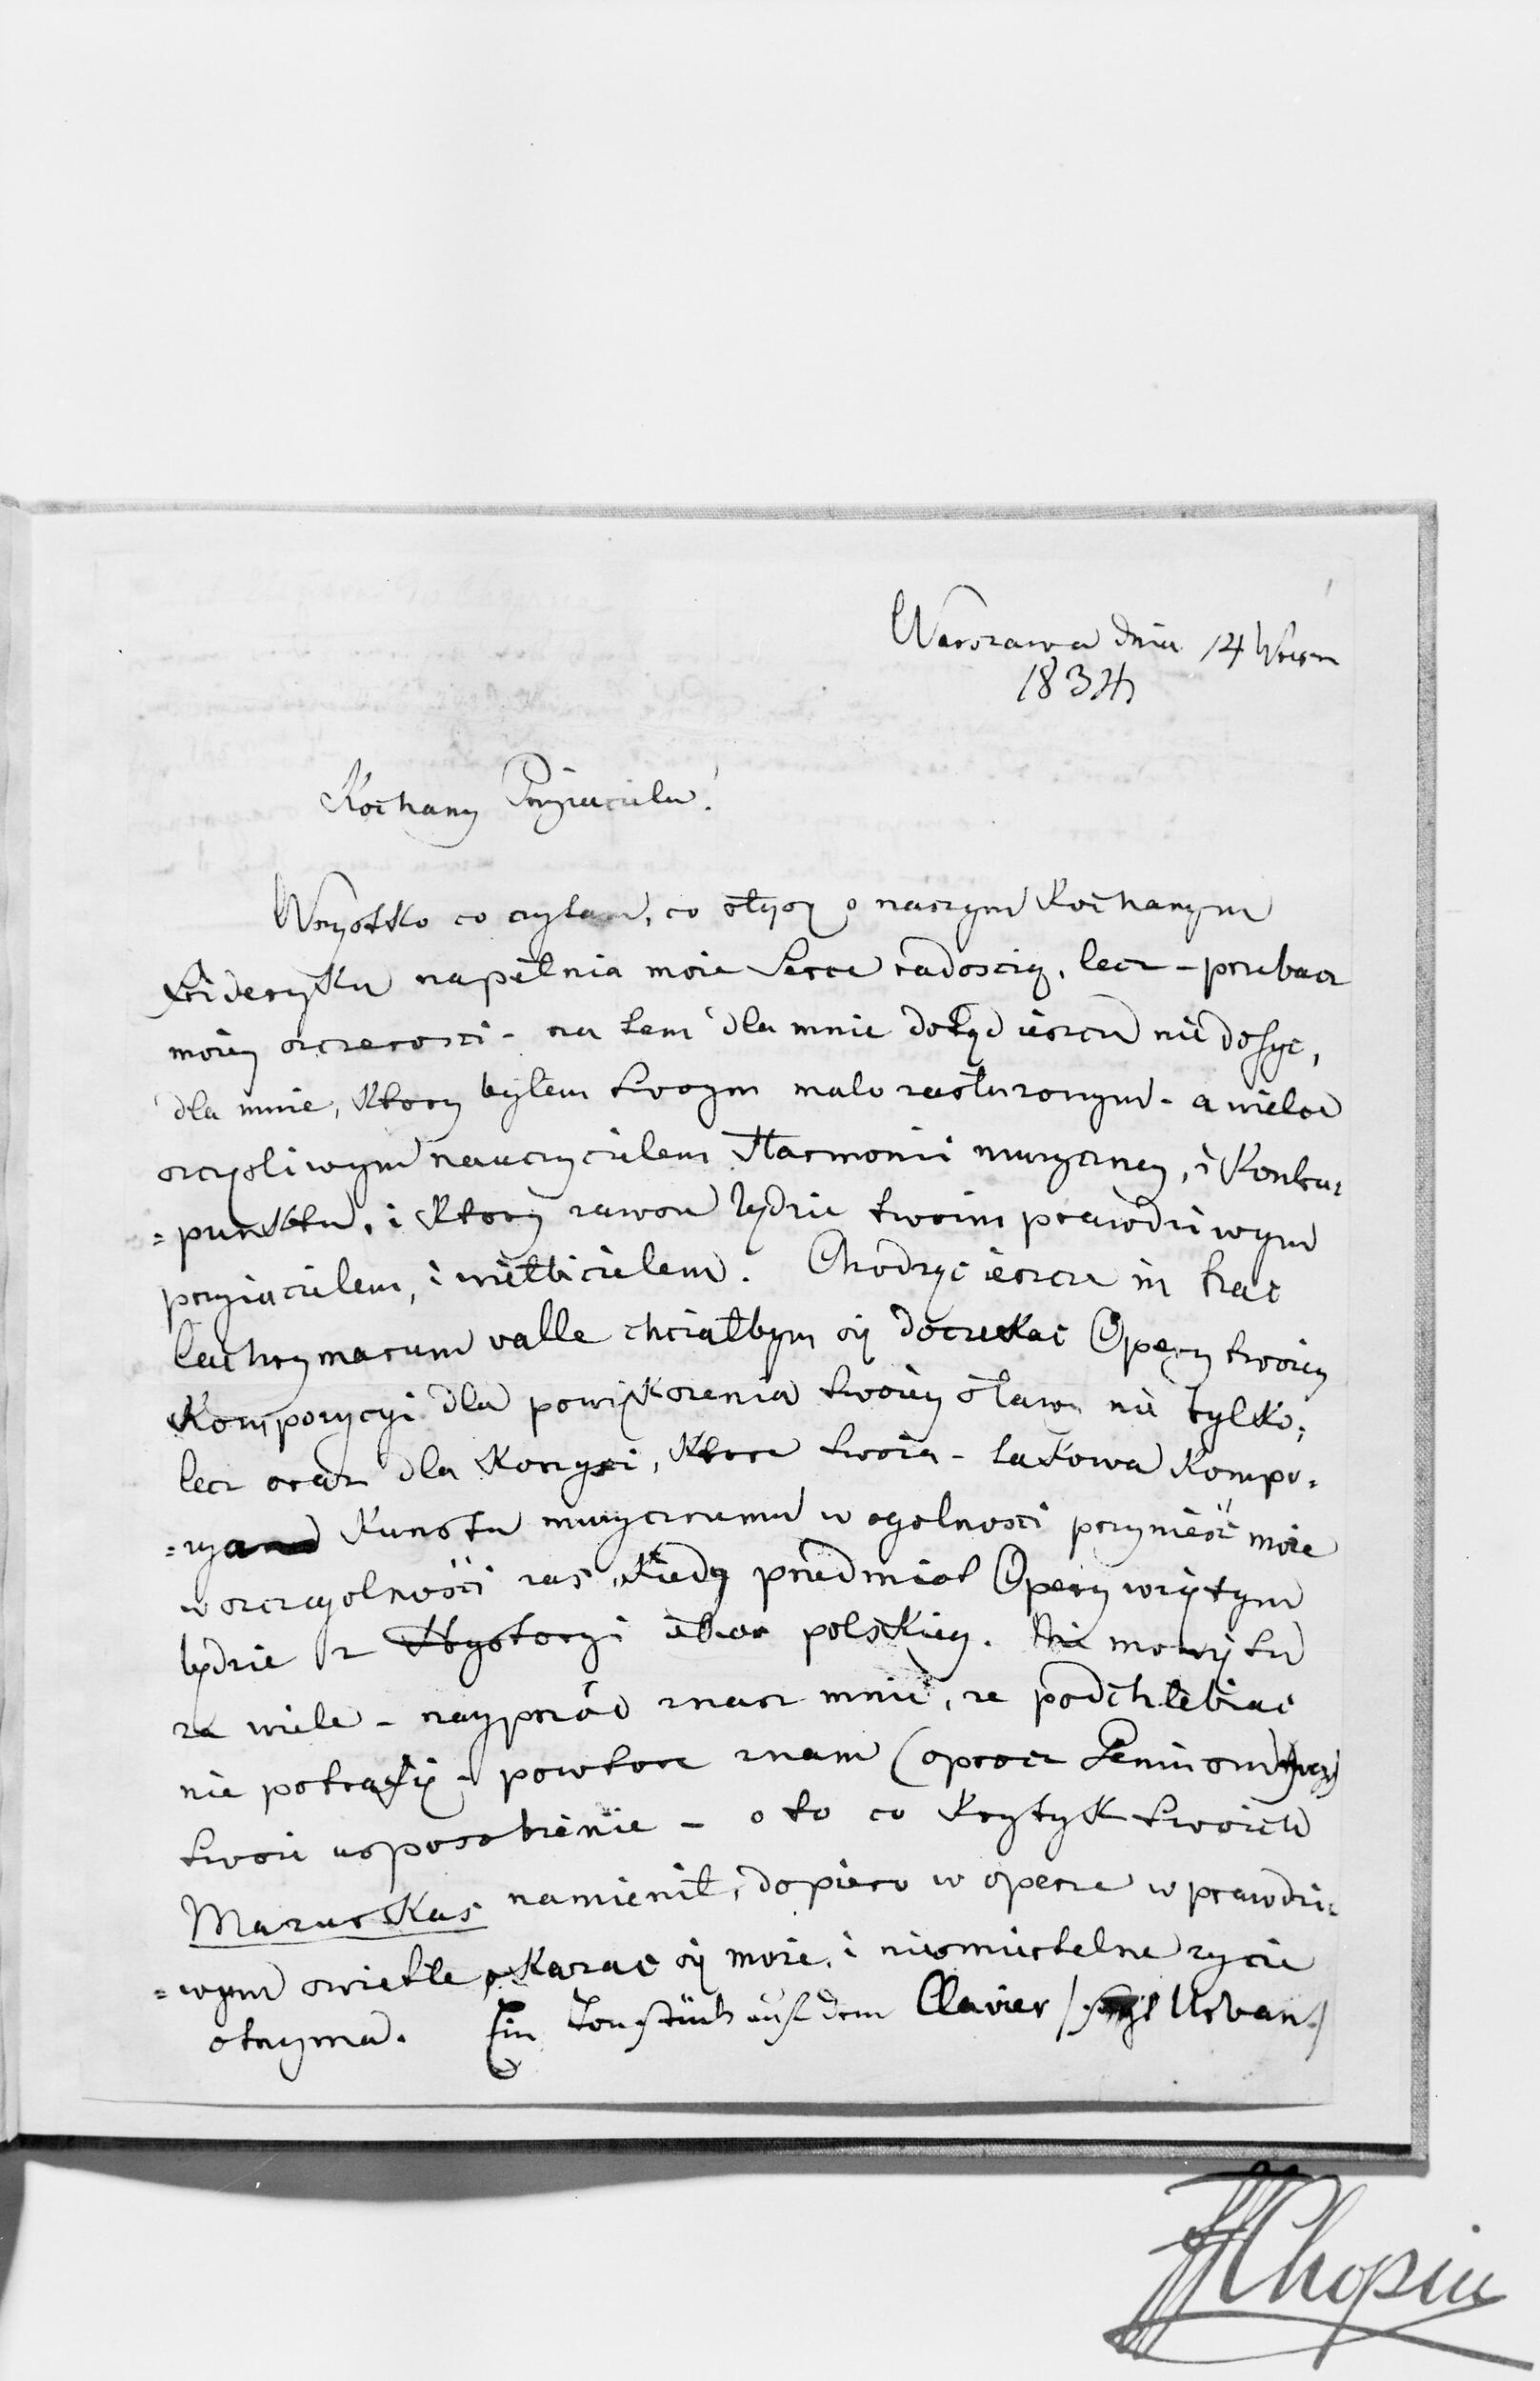 Warszawa dnia 14 Wrześn
1834
Kochany Przyiacielu!
Wszystko co czytam, co słyszę o naszym Kochanym
Frideryku napełnia moie Serce radoscią, lecz – przebacz
moiey szczerosci – na tem dla mnie dotąd ieszcze nie dosyć,
dla mnie, ktory byłem twoym malo zasłużonym – a wielce
szczęsliwym nauczycielem Harmonii muzyczney, i Kontra=
=punktu, i ktory zawsze będzie twoim prawdziwym
przyiacielem, i wielbicielem. Chodząc ieszcze in hac
lachrymarum valle chciałbym się doczekać Opery twoiey
Kompozycyi dla powiększenia twoiey sławy nie tylko;
lecz oraz dla Korzysci, ktore twoia – takowa Kompo=
=zycya Kunsztu muzycznemu w ogolności przynieść może
w szczegolności zaś, kiedy przedmiot Opery wziętym
będzie z Hystoryi polskiey. Nie mowię tu
za wiele – nayprzód znasz mnie, że podchlebiać
nie potrafię – powtore znam (oprocz Geniuszu twego)
twoie usposobienie – o to co Krytyk twoich
Mazurkas namienił, dopiero w operze w prawdzi=
=wym swietle okazać się może, i niesmiertelne życie
otrzyma. Ein Tonstück auf dem Clavier / sagt Urban /
Chopin